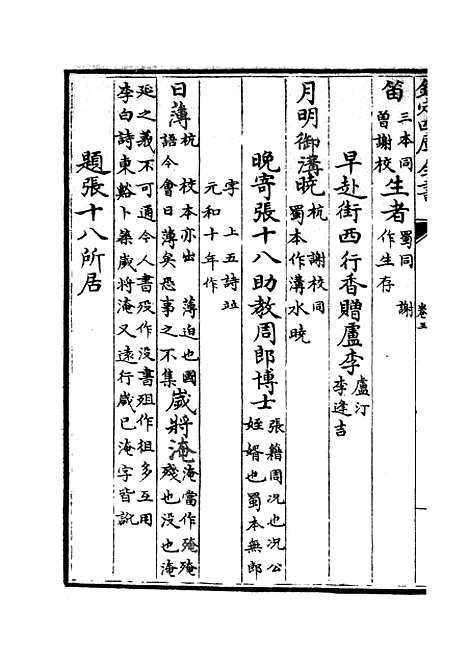 欽定四庫全書
卷五
笛三本同曾謝校生者蜀同 謝作生存
早赴街西行香贈盧李盧汀李逢吉
月明御溝曉杭 謝校同蜀本作溝水曉
晚寄張十八助教周郎博士張籍周况也况公姪婿也蜀本無郎
字 上五詩並元和十年作
日薄杭 校本亦出 薄迫也國語今會日薄矣恐事之不集歲將淹淹當作殗殗殘也没也淹
延之義不可通今人書歿作没書殂作徂多互用李白詩東谿卜築歲將淹又遠行歲已淹字皆訛
題張十八所居